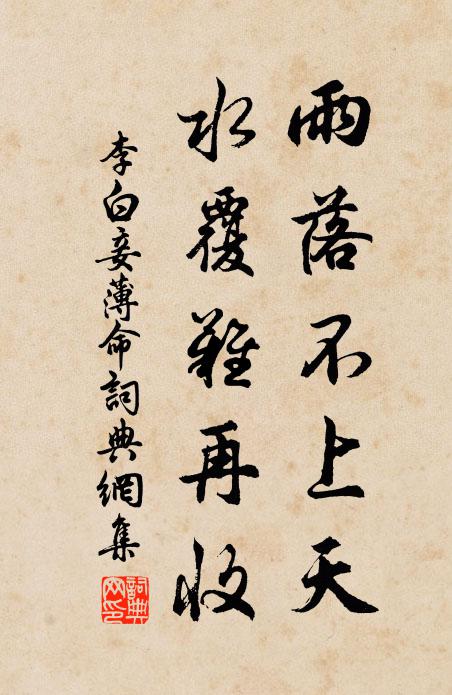 雨落不上天
水覆難再收
李白妾薄命詞典網集
詞典網印